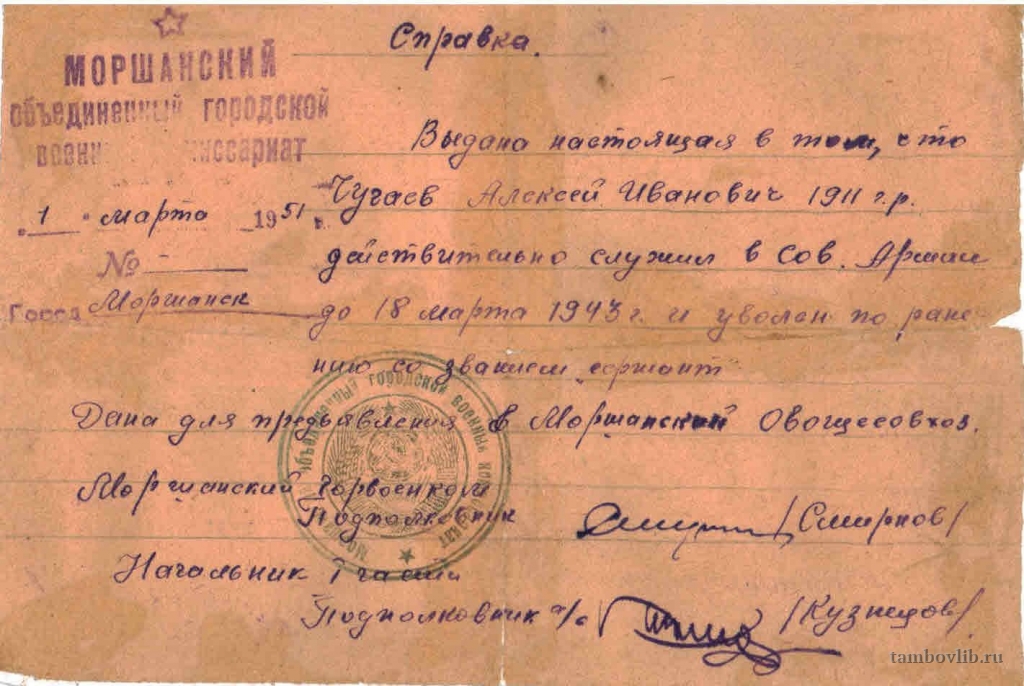 Справка.
МОРШАНСКИЙ
объединенный городской
военный комиссариат
"1" марта 1951 г.
№ —
Город Моршанск
Выдана настоящая в том, что
Чугаев Алексей Иванович 1911 г.р.
действительно служил в Сов. Армии
до 18 марта 1943 г. и уволен по ране
нию со званием сержант
Дана для предъявления в Моршанский Овощесовхоз.
Моршанский Горвоенком
Подполковник /Смирнов/
Начальник 1 части
Подполковник а/с /Кузнецов/
объединенный городской военный комиссариат
tambovlib.ru